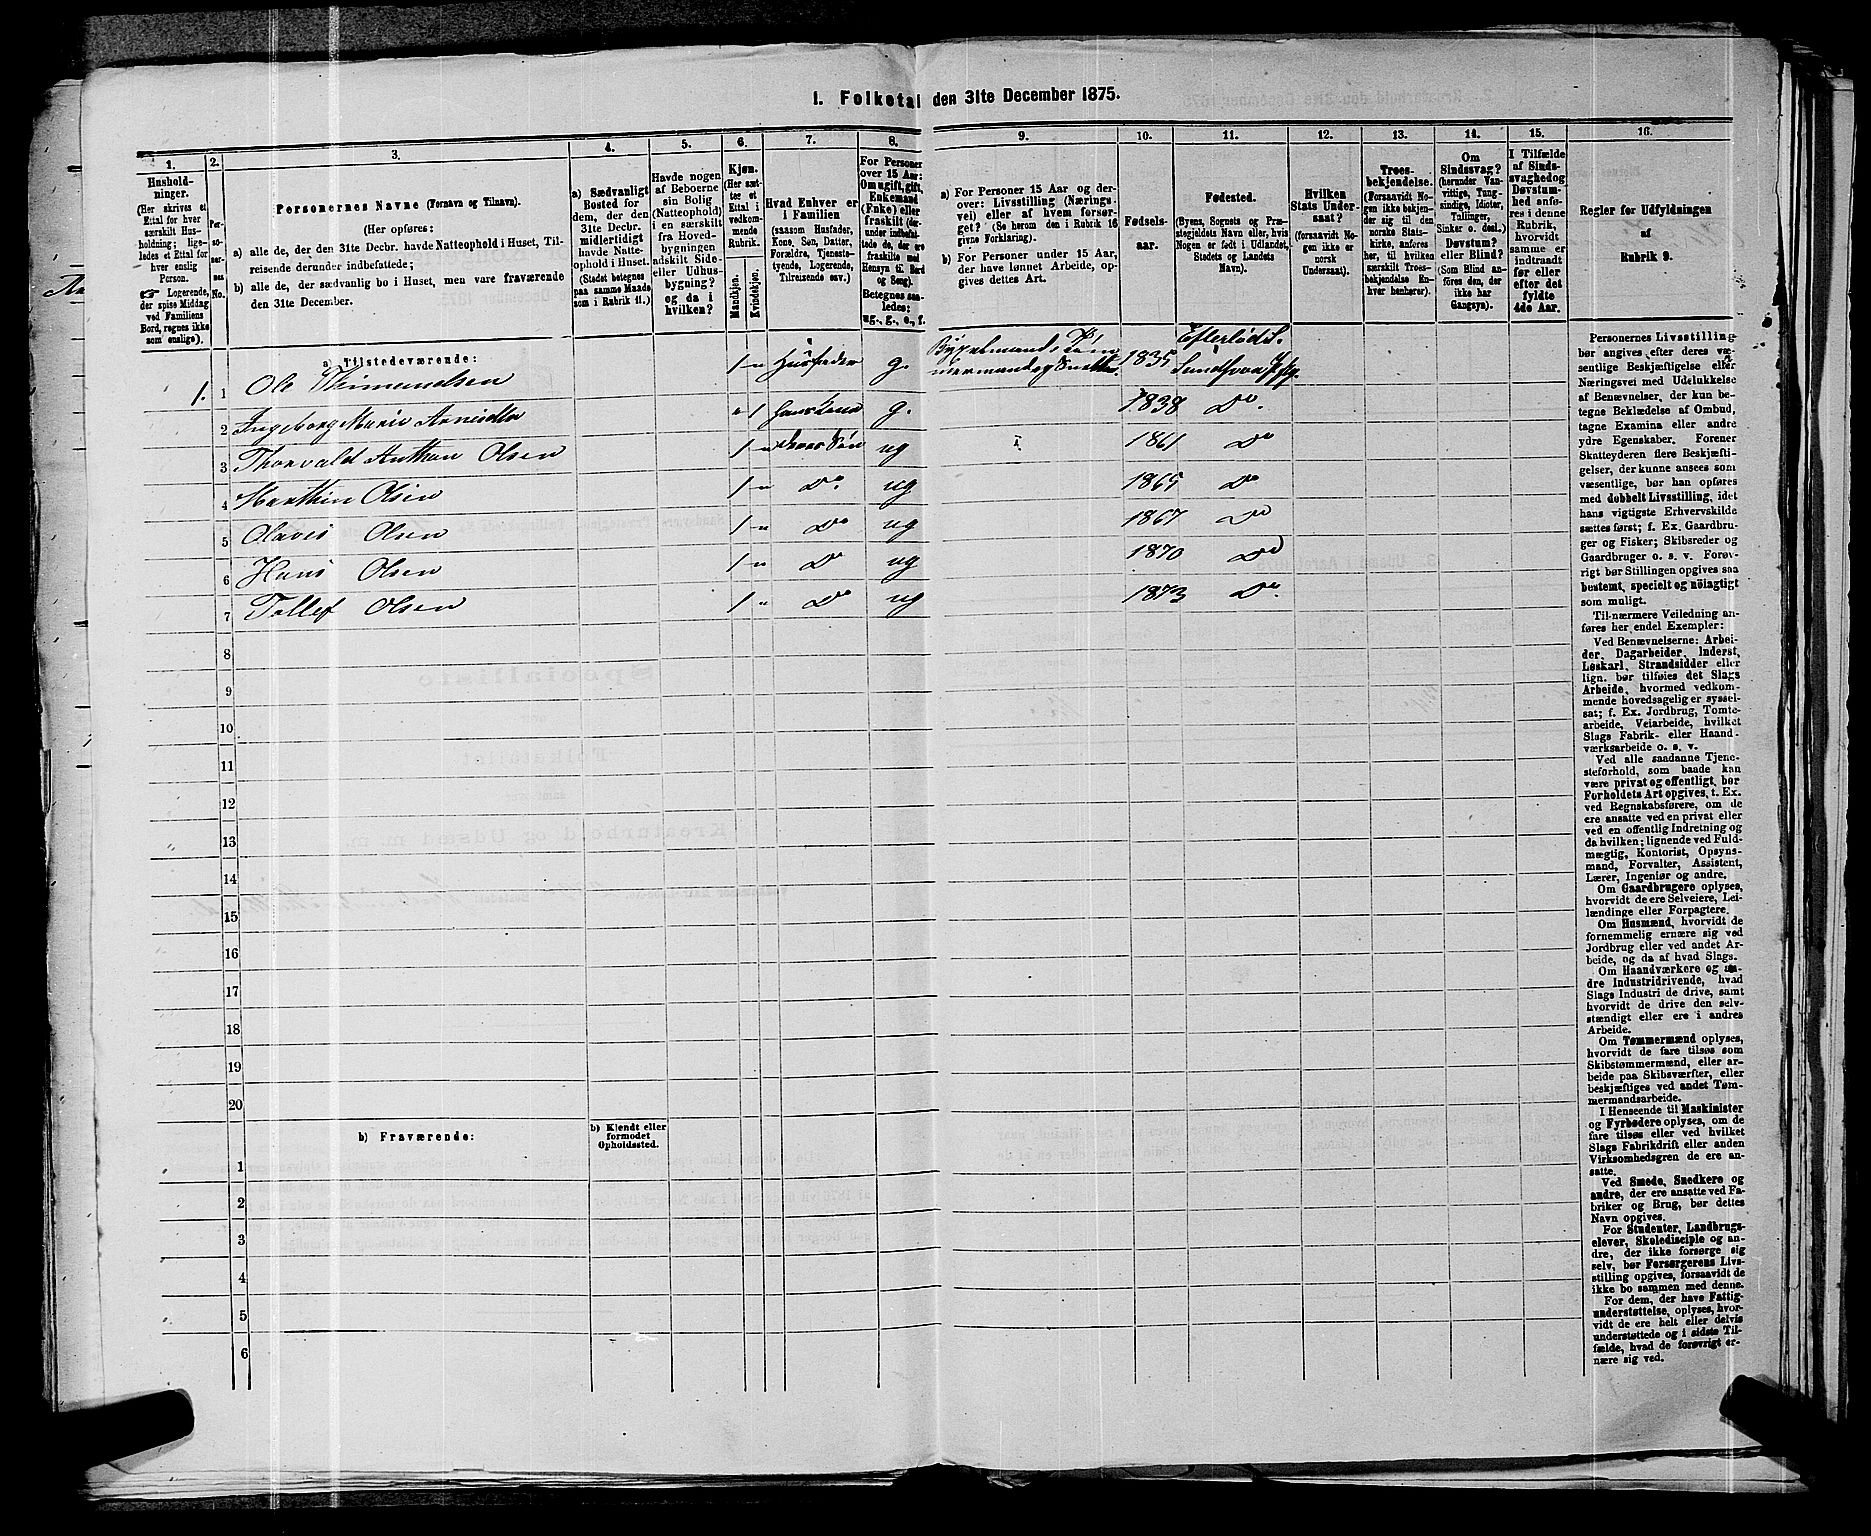 I. Folketal den 31te December 1875.
1.
2.
3.
4.
5.
6.
7.
8.
9.
10.
11.
12.
13.
14.
15.
16.
Hushold-
ninger.
(Her skrives et
Ettal for hver
særskilt Hus-
holdning; lige-
ledes et Ettal for
hver enslig
Person.
☞ Logerende,
der spise Middag
ved Familiens
Bord, regnes ikke
som enslige).
Per-
so-
ner-
nes
No.
Personernes Navne (Fornavn og Tilnavn).
(Her opføres:
a) alle de, der den 31te Decbr. havde Natteophold i Huset, Til-
reisende derunder indbefattede;
b) alle de, der sædvanlig bo i Huset, men vare fraværende
den 31te December.
a) Sædvanligt
Bosted for
dem, der den
31te Decbr.
midlertidigt
havde Natte-
ophold i Huset.
(Stedet betegnes
paa samme Maade
som i Rubrik 11.)
Havde nogen
af Beboerne
sin Bolig
(Natteophold)
i en særskilt
fra Hoved-
bygningen
adskilt Side-
eller Udhus-
bygning?
og da i
hvilken?
Kjøn.
(Her sæt-
tes et
Ettal i
vedkom-
mende
Rubrik.
Mandkjøn.
Kvindekjøn.
Hvad Enhver er
i Familien
(saasom Husfader,
Kone, Søn, Datter,
Forældre, Tjeneste-
tyende, Logerende,
Tilreisende osv.)
For Personer
over 15 Aar:
Om ugift, gift,
Enkemand
(Enke) eller
fraskilt (der-
under indbefat-
tede de, der ere
fraskilte med
Hensyn til Bord
og Seng).
Betegnes saa-
ledes:
ug., g., e., f.
a) For Personer 15 Aar og der-
over: Livsstilling (Nærings-
vei) eller af hvem forsør-
get? (Se herom den i Rubrik 16
givne Forklaring).
b) For Personer under 15 Aar,
der have lønnet Arbeide, op-
gives dettes Art.
Fødsels-
aar.
Fødested.
(Byens, Sognets og Præ-
stegjeldets Navn eller, hvis
Nogen er født i Udlandet,
Stedets og Landets
Navn).
Hvilken
Stats Under-
saat?
(forsaavidt No-
gen ikke er
norsk
Undersaat).
Troes-
bekjendelse.
(Forsaavidt No-
gen ikke bekjen-
der sig til den
norske Stats-
kirke, anføres
her, til hvilken
særskilt Troes-
bekjendelse En-
hver henhører).
Om
Sindssvag?
(herunder Van-
vittige, Tung-
sindige, Idioter,
Tullinger,
Sinker o. desl.)
Døvstum?
eller Blind?
(Som Blind an-
føres den, der
ikke har
Gangsyn).
I Tilfælde
af Sinds-
svaghed og
Døvstum-
hed anfø-
res i denne
Rubrik,
hvorvidt
samme er
indtraadt
før eller
efter det
fyldte
4de Aar.
Regler for Udfyldningen
af
Rubrik 9.
a) Tilstedeværende:
1. 1 Ole 1 " Husfader g. 1835
2 Ingeborg Marie " 1 g. 1838 Do.
3 Thorvald Anthon Olsen 1 " ug 1861 Do
4 Marthin Olsen 1 " Do. ug 1865 Do
5 Olavis Olsen 1 " Do ug 1867 Do
6 Hans Olsen 1 " Do ug 1870 Do
7 Tollef Olsen 1 " Do ug 1873 Do.
8
9
10
11
12
13
14
15
16
17
18
19
20
b) Fraværende:
b) Kjendt eller
formodet
Opholdssted.
1
2
3
4
5
6
Personernes Livsstilling
bør angives efter deres væ-
sentlige Beskjæftigelse eller
Næringsvei med Udelukkelse
af Benævnelser, der kun be-
tegne Beklædelse af Ombud,
tagne Examina eller andre
ydre Egenskaber. Forener
Skatteyderen flere Beskjæfti-
gelser, der kunne ansees som
væsentlige, bør han opføres
med dobbelt Livsstilling, idet
hans vigtigste Erhvervskilde
sættes først; f. Ex. Gaardbru-
ger og Fisker; Skibsreder og
Gaardbruger o. s. v. Forøv-
rigt bør Stillingen opgives saa
bestemt, specielt og nöiagtigt
som muligt.
Til nærmere Veiledning an-
føres her endel Exempler:
Ved Benævnelserne: Arbei-
der, Dagarbeider, Inderst,
Løskarl, Strandsidder eller
lign. bør tilføies det Slags
Arbeide, hvormed vedkom-
mende hovedsagelig er syssel-
sat; f. Ex. Jordbrug, Tomte-
arbeide, Veiarbeide, hvilket
Slags Fabrik- eller Haand-
værksarbeide o. s. v.
Ved alle saadanne Tjene-
steforhold, som baade kan
være privat og offentligt, bør
Forholdets Art opgives, t. Ex.
ved Regnskabsførere, om de
ere ansatte ved en privat eller
ved en offentlig Indretning og
da hvilken; lignende ved Fuld-
mægtig, Kontorist, Opsyns-
mand, Forvalter, Assistent,
Lærer, Ingeniør og andre.
Om Gaardbrugere oplyses,
hvorvidt de ere Selveiere, Lei-
lændinge eller Forpagtere.
Om Husmænd, hvorvidt de
fornemmelig ernære sig ved
Jordbrug eller ved andet Ar-
beide, og da af hvad Slags.
Om Haandværkere og an-
dre Industridrivende, hvad
Slags Industri de drive, samt
hvorvidt de drive den selv-
stændigt eller ere i andres
Arbeide.
Om Tømmermænd oplyses,
hvorvidt de fare tilsøs som
Skibstømmermænd, eller ar-
beide paa Skibsværfter, eller
beskjæftiges ved andet Tøm-
mermandsarbeide.
I Henseende til Maskinister
og Fyrbødere oplyses, om de
fare tilsøs eller ved hvilket
Slags Fabrikdrift eller anden
Virksomhedsgren de ere an-
satte.
Ved Smede, Snedkere og
andre, der ere ansatte ved Fa-
briker og Brug, bør dettes
Navn opgives.
For Studenter, Landbrugs-
elever, Skoledisciple og an-
dre, der ikke forsørge sig
selv, bør Forsørgerens Livs-
stilling opgives, forsaavidt de
ikke bo sammen med denne.
For dem, der have Fattig-
understøttelse, oplyses, hvor-
vidt de ere helt eller delvis
understøttede og i sidste Til-
fælde, hvad de forøvrigt er-
nære sig ved.